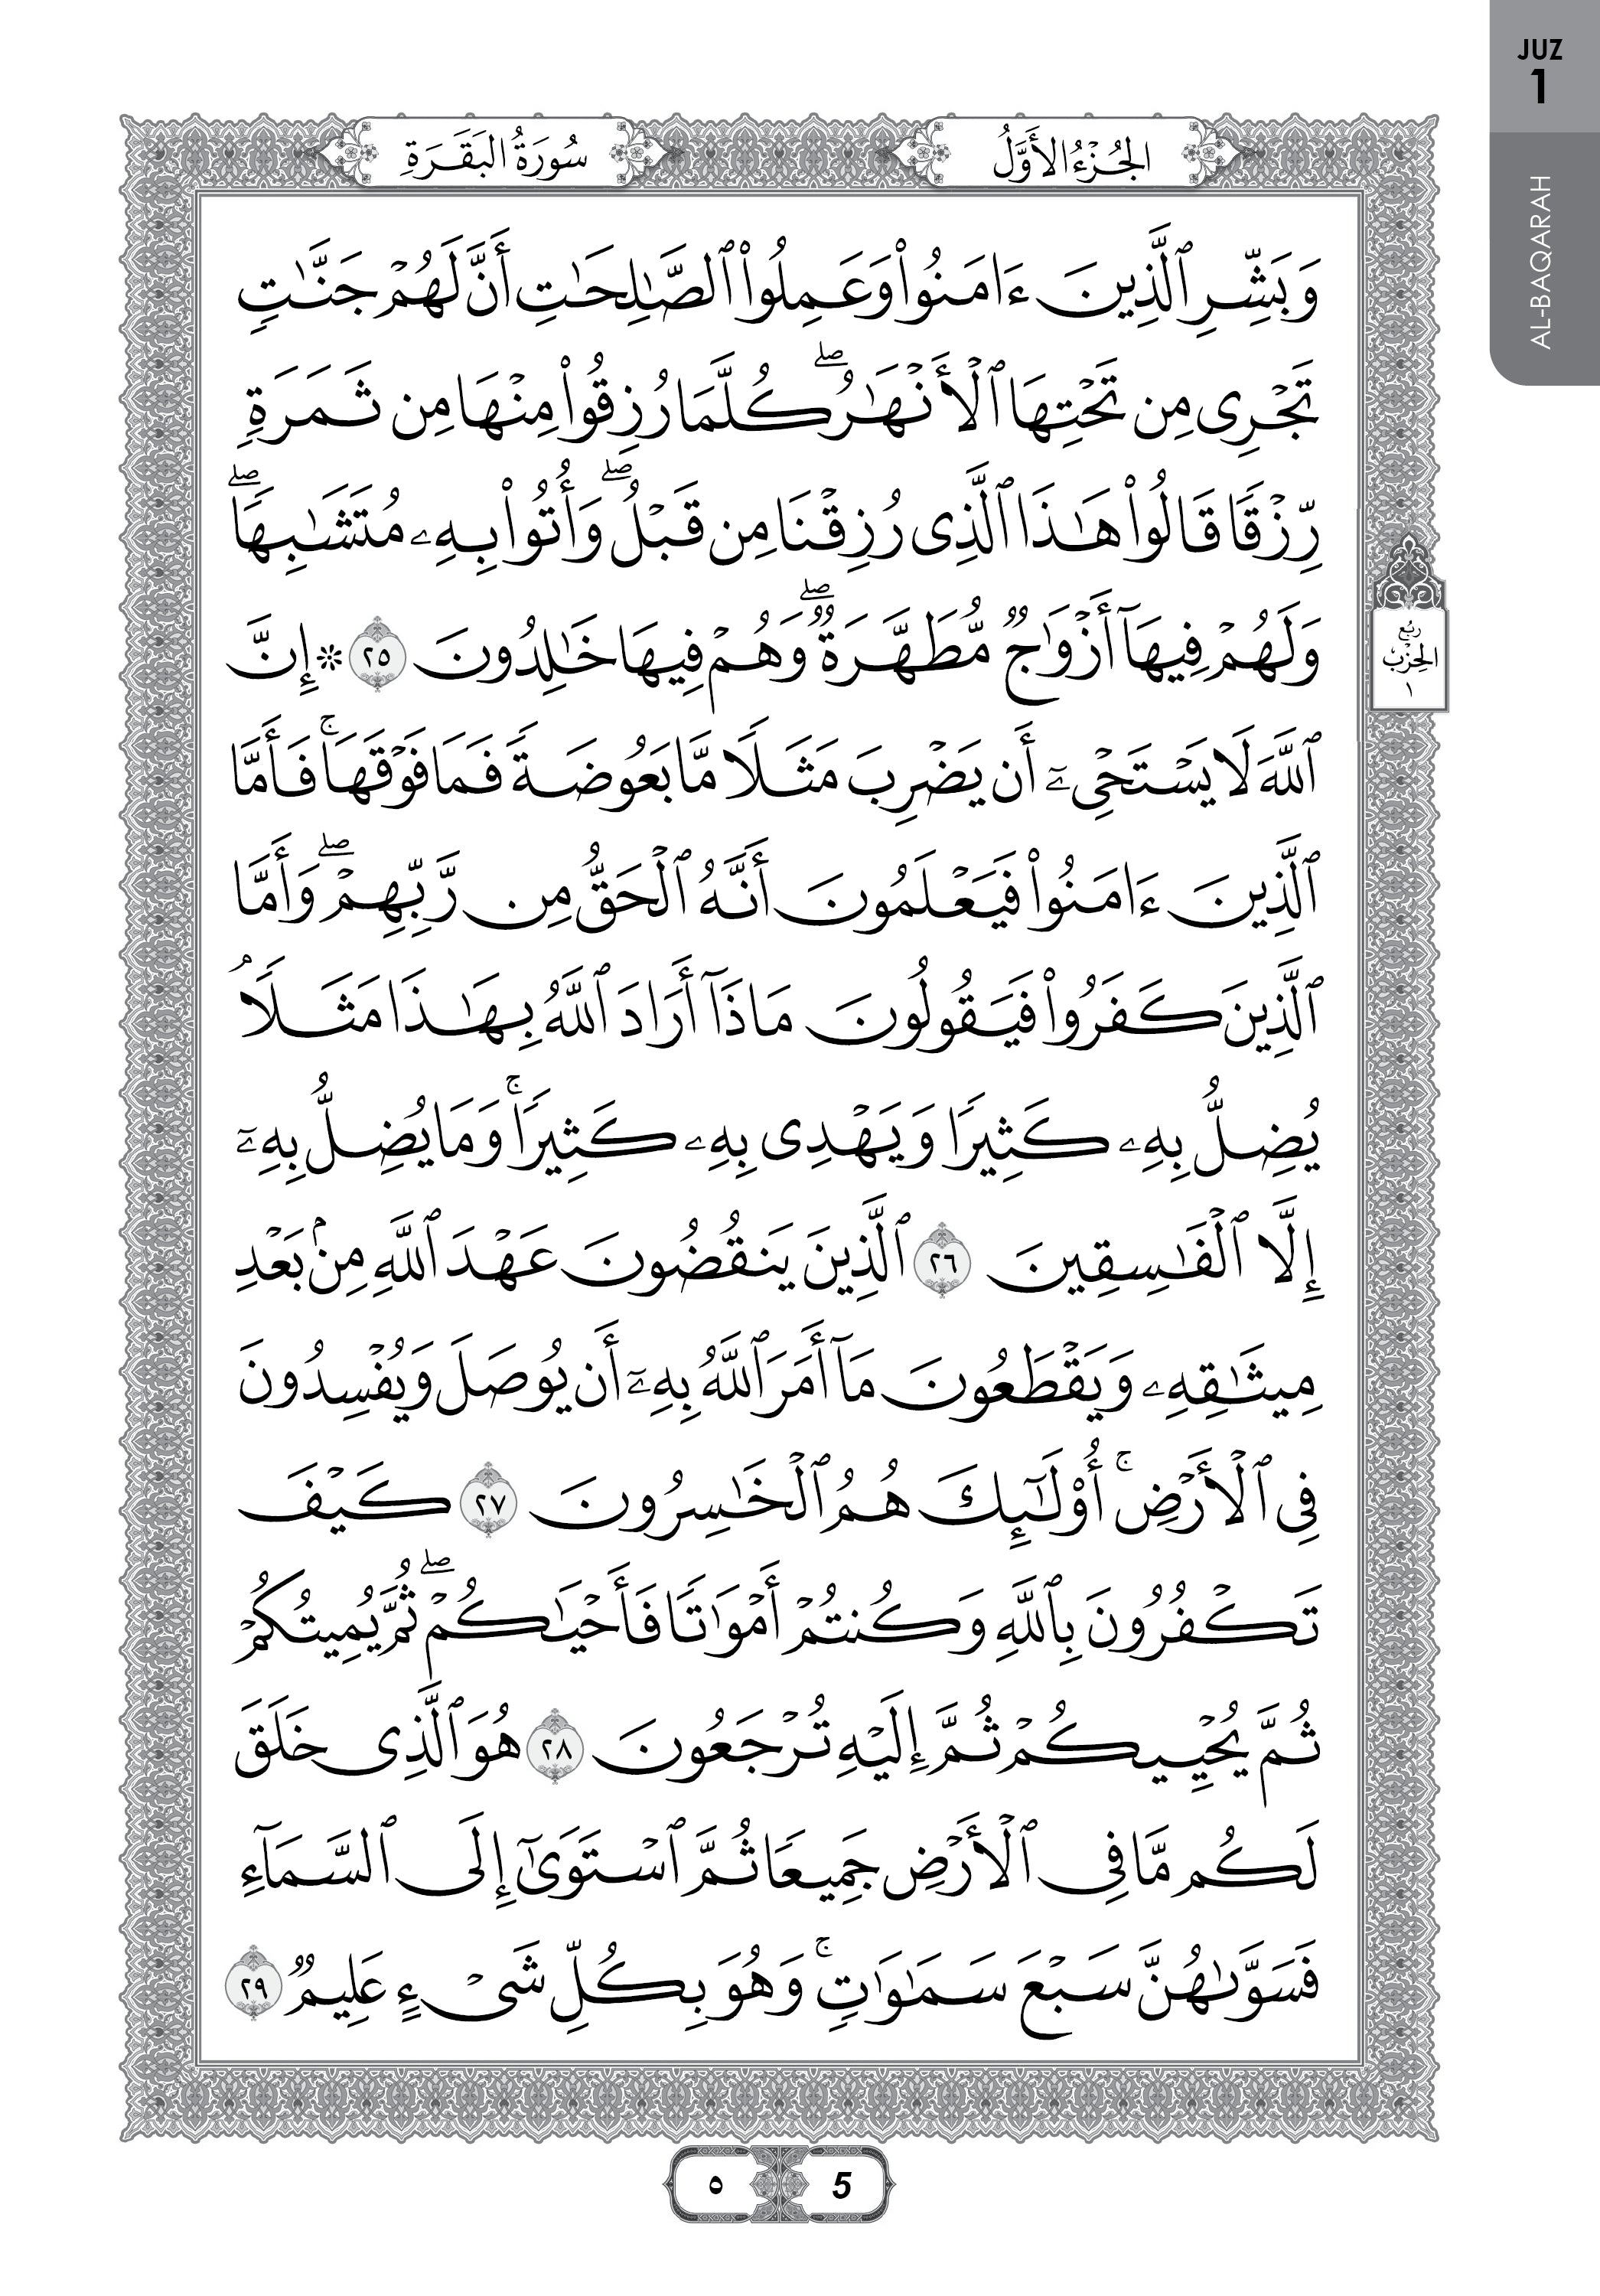 JUZ
1
AL-BAQARAH
الجُزْءُ الأَوَّلُ
سُورَةُ البَقَرَةِ
وَبَشِّرِ ٱلَّذِينَ ءَامَنُوا۟ وَعَمِلُوا۟ ٱلصَّـٰلِحَـٰتِ أَنَّ لَهُمْ جَنَّـٰتٍ
تَجْرِى مِن تَحْتِهَا ٱلْأَنْهَـٰرُ ۖ كُلَّمَا رُزِقُوا۟ مِنْهَا مِن ثَمَرَةٍ
رِّزْقًا قَالُوا۟ هَـٰذَا ٱلَّذِى رُزِقْنَا مِن قَبْلُ ۖ وَأُتُوا۟ بِهِۦ مُتَشَـٰبِهًا ۖ
وَلَهُمْ فِيهَآ أَزْوَٰجٌ مُّطَهَّرَةٌ ۖ وَهُمْ فِيهَا خَـٰلِدُونَ ٢٥ ۞ إِنَّ
ٱللَّهَ لَا يَسْتَحْىِۦٓ أَن يَضْرِبَ مَثَلًا مَّا بَعُوضَةً فَمَا فَوْقَهَا ۚ فَأَمَّا
ٱلَّذِينَ ءَامَنُوا۟ فَيَعْلَمُونَ أَنَّهُ ٱلْحَقُّ مِن رَّبِّهِمْ ۖ وَأَمَّا
ٱلَّذِينَ كَفَرُوا۟ فَيَقُولُونَ مَاذَآ أَرَادَ ٱللَّهُ بِهَـٰذَا مَثَلًا ۘ
يُضِلُّ بِهِۦ كَثِيرًا وَيَهْدِى بِهِۦ كَثِيرًا ۚ وَمَا يُضِلُّ بِهِۦٓ
إِلَّا ٱلْفَـٰسِقِينَ ٢٦ ٱلَّذِينَ يَنقُضُونَ عَهْدَ ٱللَّهِ مِنۢ بَعْدِ
مِيثَـٰقِهِۦ وَيَقْطَعُونَ مَآ أَمَرَ ٱللَّهُ بِهِۦٓ أَن يُوصَلَ وَيُفْسِدُونَ
فِى ٱلْأَرْضِ ۚ أُو۟لَـٰٓئِكَ هُمُ ٱلْخَـٰسِرُونَ ٢٧ كَيْفَ
تَكْفُرُونَ بِٱللَّهِ وَكُنتُمْ أَمْوَٰتًا فَأَحْيَـٰكُمْ ۖ ثُمَّ يُمِيتُكُمْ
ثُمَّ يُحْيِيكُمْ ثُمَّ إِلَيْهِ تُرْجَعُونَ ٢٨ هُوَ ٱلَّذِى خَلَقَ
لَكُم مَّا فِى ٱلْأَرْضِ جَمِيعًا ثُمَّ ٱسْتَوَىٰٓ إِلَى ٱلسَّمَآءِ
فَسَوَّىٰهُنَّ سَبْعَ سَمَـٰوَٰتٍ ۚ وَهُوَ بِكُلِّ شَىْءٍ عَلِيمٌ ٢٩
رُبُع
الحِزْب
١
٥ 5